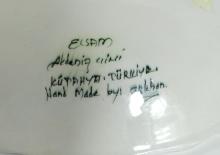 ELSAM
Akdeniz çini
KÜTAHYA. TÜRKİYE.
Hand Made by: